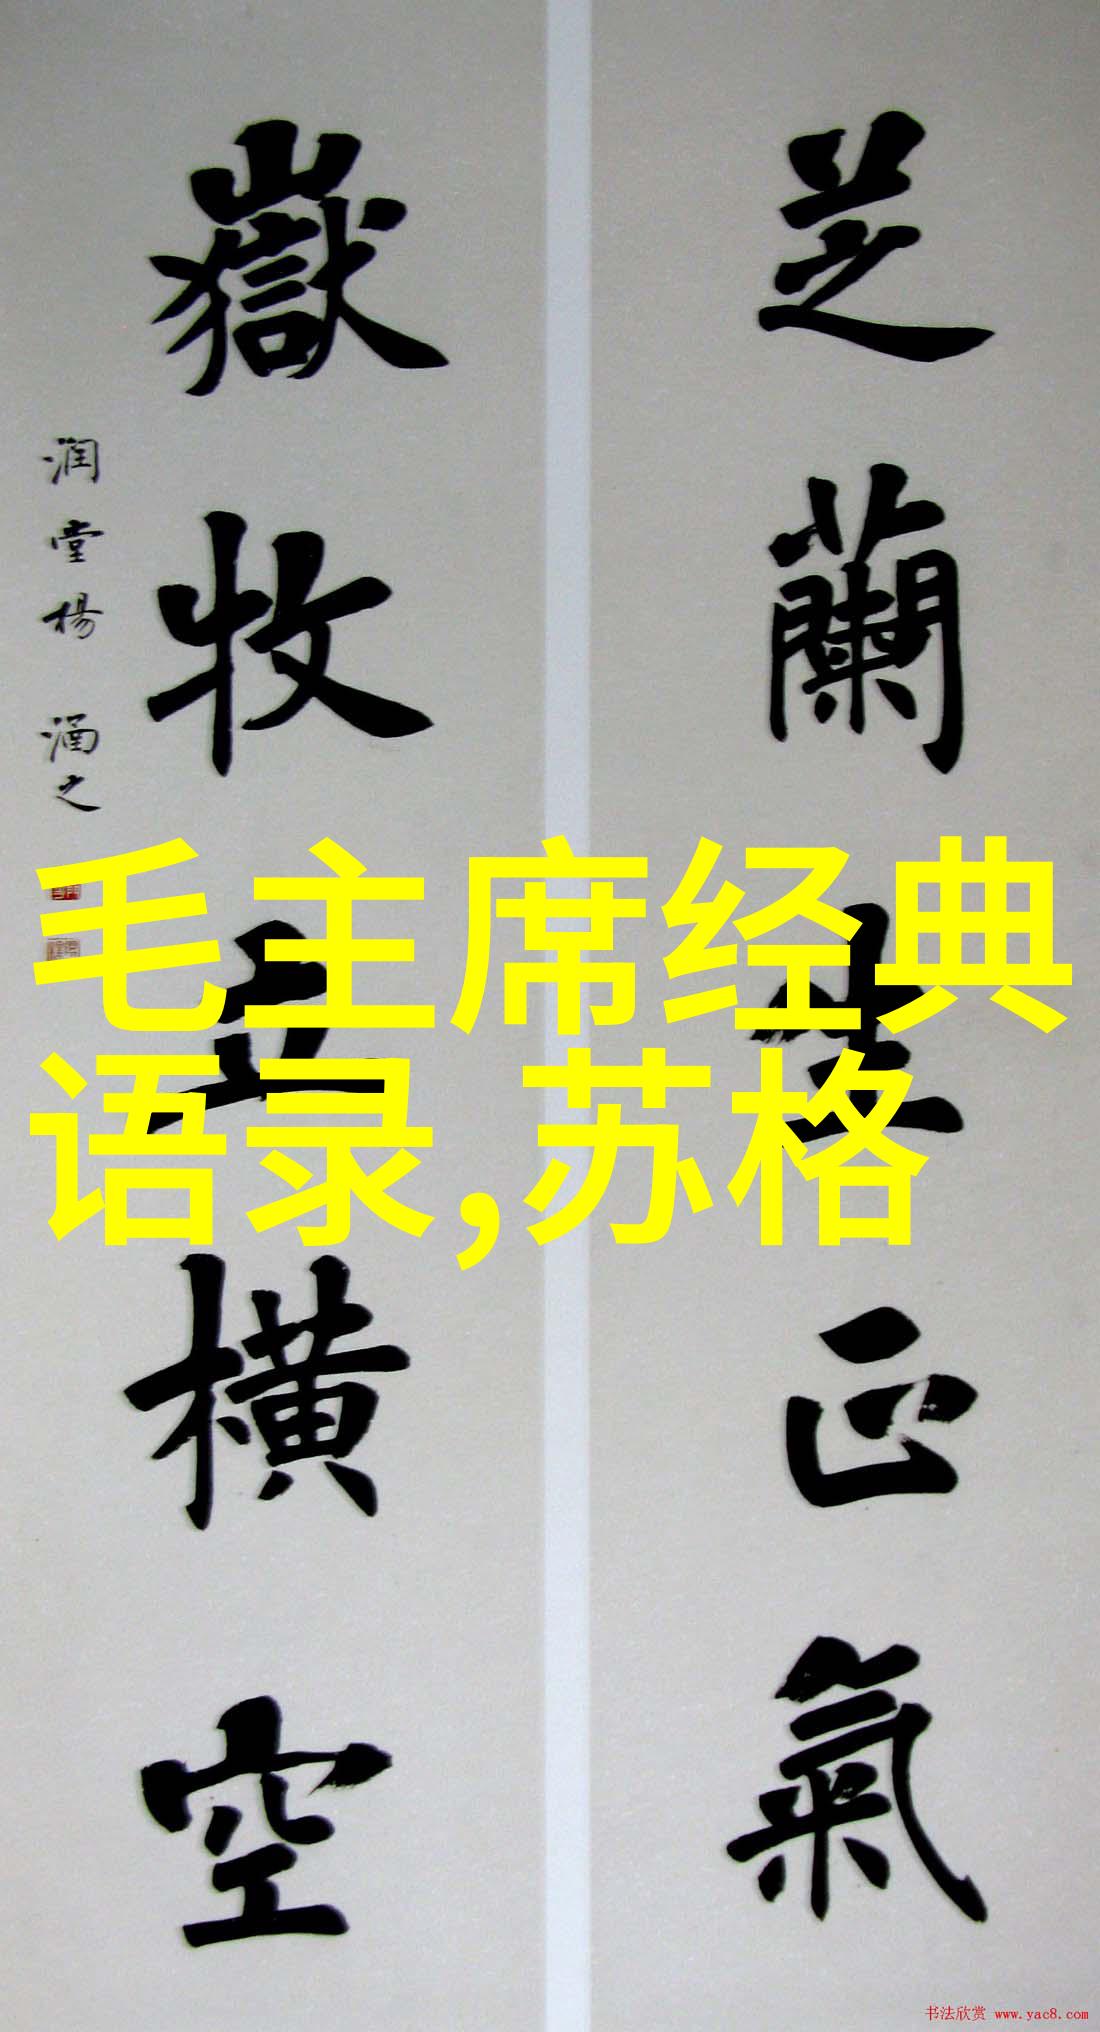 芝蘭生正氣
嶽牧橫空
润堂楊 涵之
毛主席经典
语录,苏格
书法欣赏 www.yac8.com